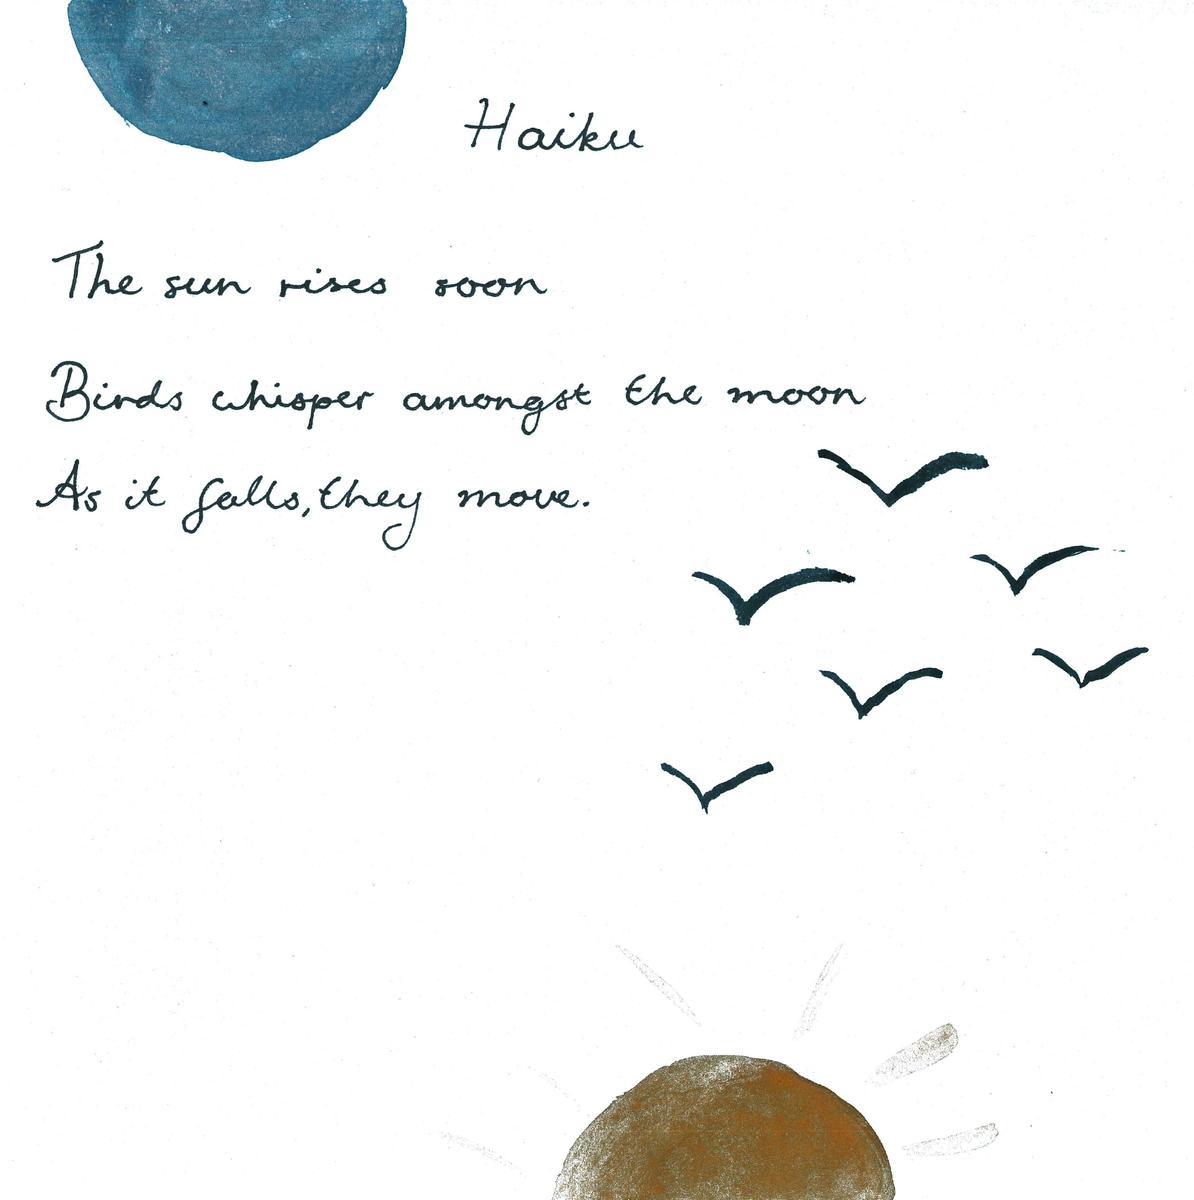 Haiku
The sun rises soon
Birds whisper amongst the moon
As it falls, they move.